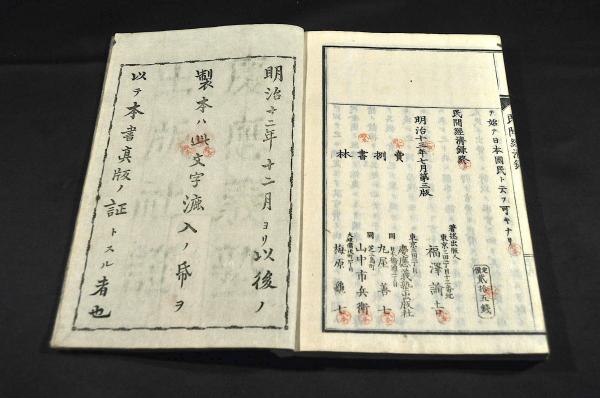 民間經濟録
テ始テ日本國民ト云フ可キナリ
民間經濟録終
明治十三年七月第三版
定價貳拾五錢
著述出版人
福澤諭吉
賣捌書林
慶應義塾出版社
同
丸屋善七
同
山中市兵衛
梅原龜七
明治十二年十二月ヨリ以後ノ
製本ハ此文字漉入ノ帋ヲ
以テ本書真版ノ証トスル者也